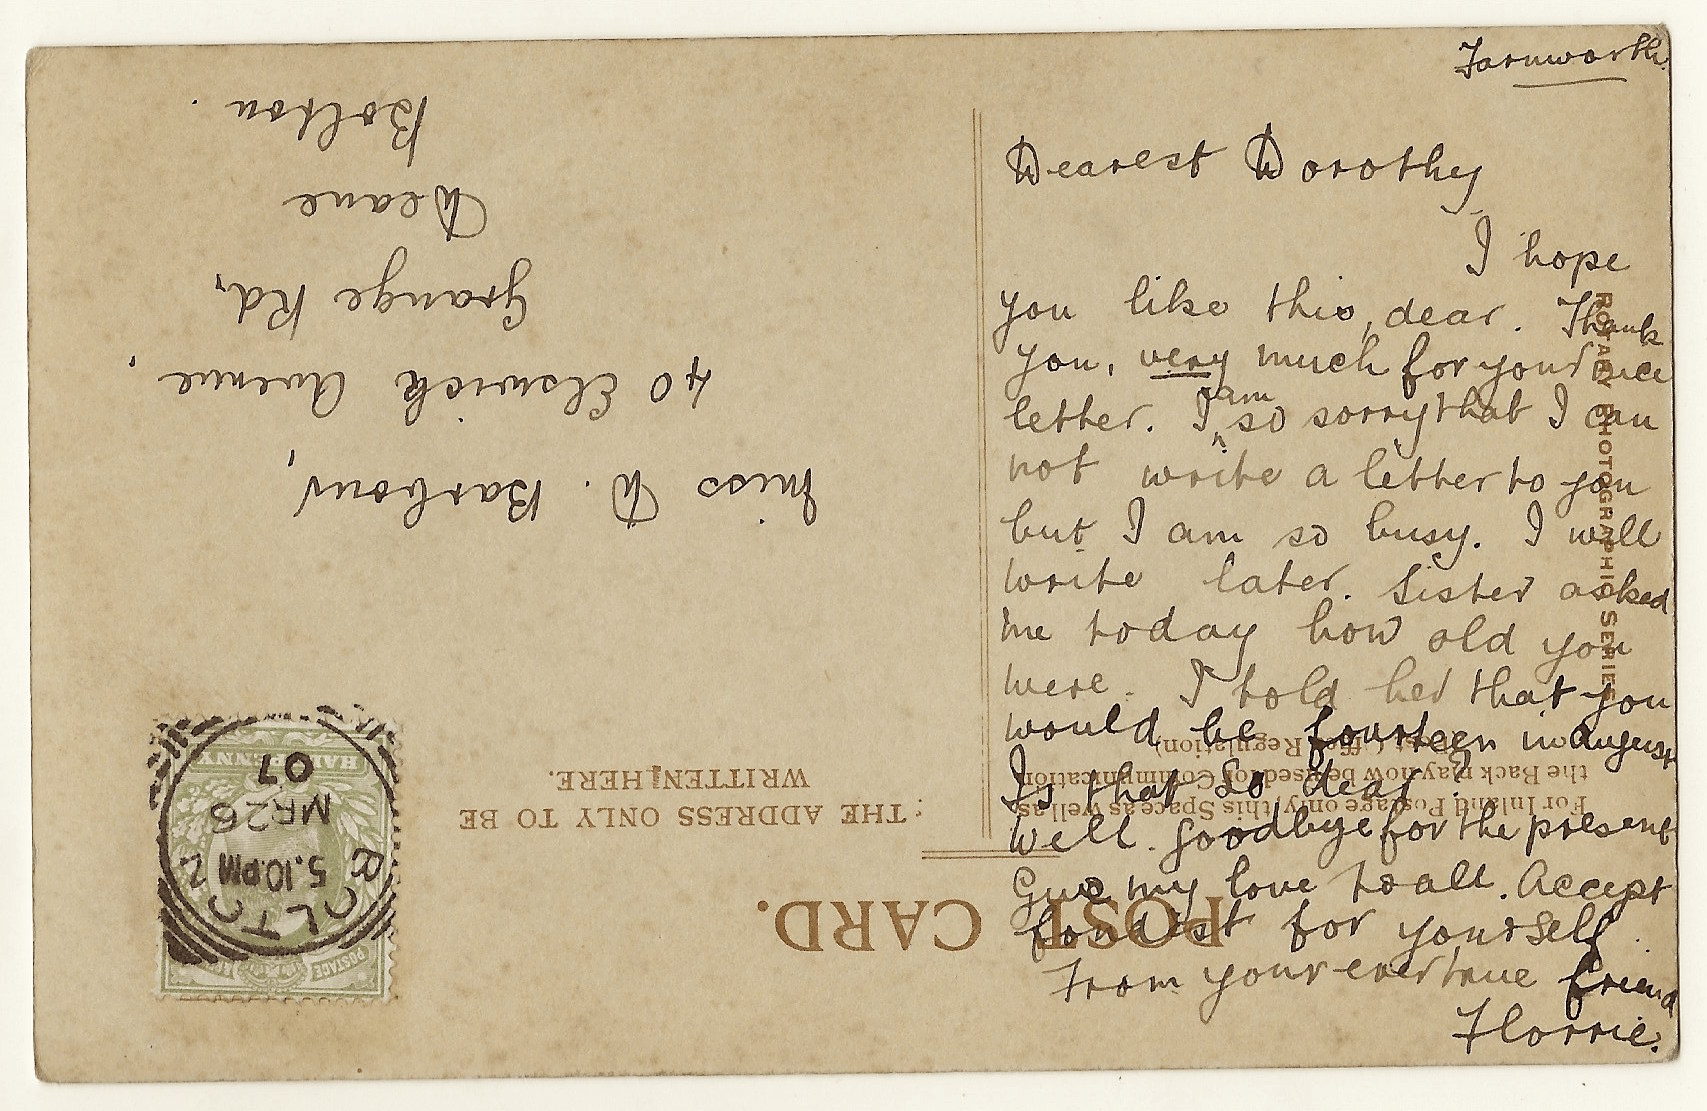 Farnworth.
Dearest Dorothy
I hope
you like this, dear. Thank
you, very much for your nice
letter. I am so sorry that I can
not write a letter to you
but I am so busy. I will
write later. Sister asked
me today how old you
were. I told her that you
would be fourteen in August
Is that so dear?
Well goodbye for the present
Give my love to all. Accept
fondest for yourself.
From your ever true friend
Florrie.
ROTARY PHOTOGRAPHIC SERIES
POST CARD.
For Inland Postage only, this Space as well as
the Back may now be used for Communication
(Post Office Regulation).
THE ADDRESS ONLY TO BE
WRITTEN HERE.
Miss D. Barbour,
40 Elswick Avenue,
Grange Rd,
Deane
Bolton.
POSTAGE
HALFPENNY
BOLTO
5.10 PM
MR 26
07